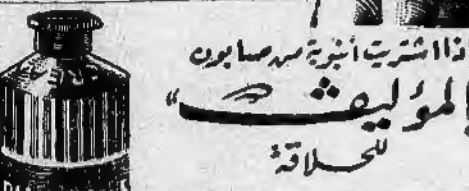 ذا اشتريت أنبوبة من صابون
بالموليف"
للحلاقة